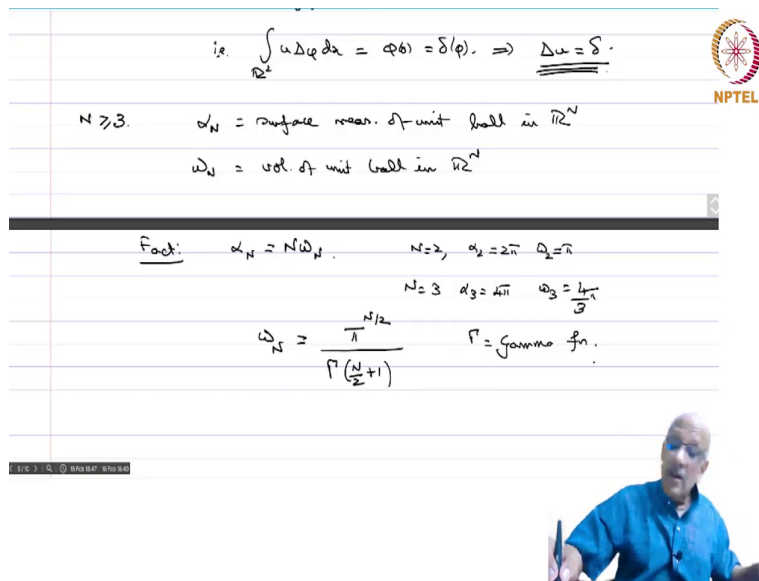 i.e. ∫_{ℝ²} u Δφ dx = φ(0) = δ(φ). ⇒ Δu = δ.
NPTEL
N ≥ 3. α_N = surface meas. of unit ball in ℝ^N
ω_N = vol. of unit ball in ℝ^N
Fact: α_N = Nω_N. N=2, α_2 = 2π ω_2 = π
N=3 α_3 = 4π ω_3 = 4/3 π
ω_N = π^{N/2} / Γ(N/2 + 1) Γ = Gamma fn.
5/10